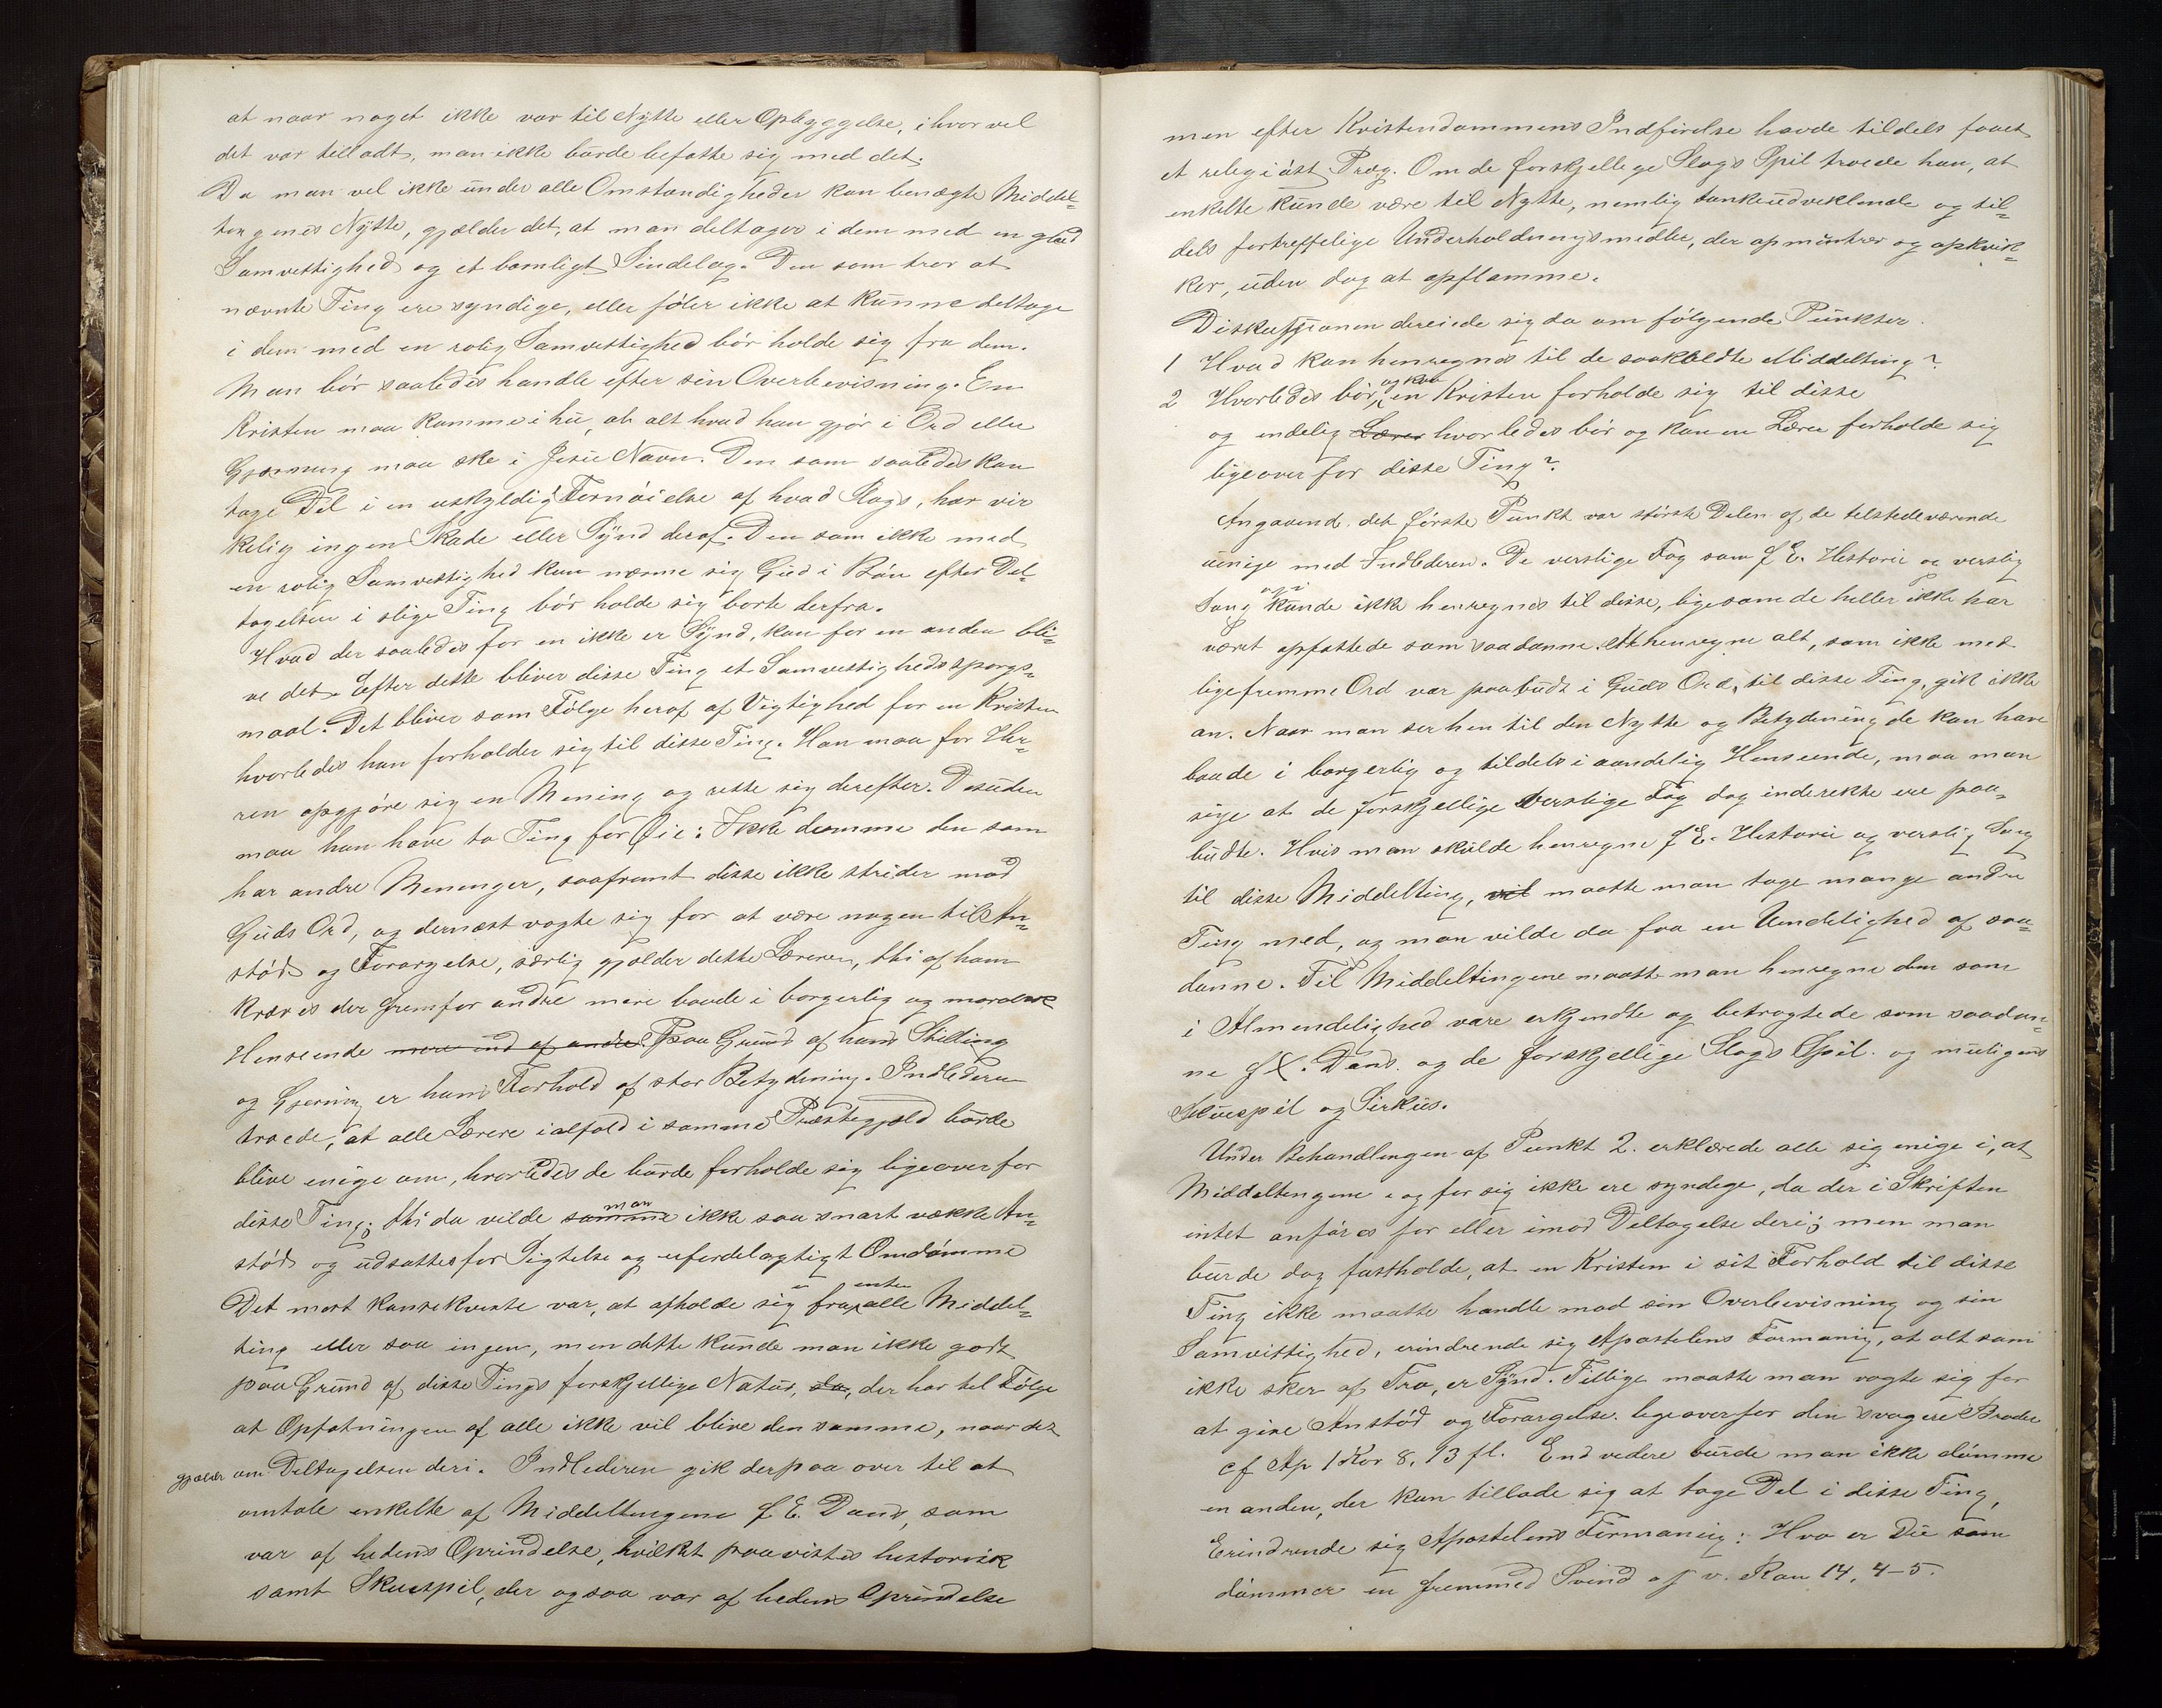 at naar noget ikke var til Nytte eller Opbyggelse, ihvorvel
det var tilladt, man ikke burde befatte sig med det.
Da man vel ikke under alle Omstændigheder kan benægte Middel-
tingenes Nytte, gjælder det, at man deltager i dem med en glad
Samvittighed og et barnligt Sindelag. Den som tror at
nævnte Ting ere syndige, eller føler ikke at kunne deltage
i dem med en rolig Samvittighed bør holde sig fra dem.
Man bør saaledes handle efter sin Overbevisning. En
Kristen maa komme ihu, at alt hvad han gjør i Ord eller
Gjærning maa ske i Jesu Navn. Den som saaledes kan
tage Del i en uskyldig Fornøielse af hvad Slags, har vir
kelig ingen Skade eller Synd deraf. Den som ikke med
en rolig Samvittighed kan nærme sig Gud i Bøn efter Del-
tagelsen i slige Ting bør holde sig borte derfra.
Hvad der saaledes for en ikke er Synd, kan for en anden bli-
ve det. Efter dette bliver disse Ting et Samvittighedsspørgs-
maal. Det bliver som Følge heraf af Vigtighed for en Kristen
hvorledes han forholder sig til disse Ting. Han maa for Her-
ren opgjøre sig en Mening og rette sig derefter. Desuden
maa han have to Ting for Øie: Ikke dømme den som
har andre Meninger, saafremt disse ikke strider mod
Guds Ord, og dernæst vogte sig for at være nogen til An-
stød og Forargelse, særlig gjælder dette Læreren, thi af ham
kræves der fremfor andre mere baade i borgerlig og moralsk
Henseende mere end af andre. Paa Grund af hans Stilling
og Gjerning er hans Forhold af stor Betydning. Indlederen
troede, at alle Lærere ialfald i samme Præstegjæld burde
blive enige om, hvorledes de burde forholde sig ligeoverfor
disse Ting; thi da vilde samme man ikke saa snart vække An-
stød og udsættes for Sigtelse og ufordelagtigt Omdømme
Det mest konsekvente var, at afholde sig fra enten alle Middel-
ting eller saa ingen, men dette kunde man ikke godt
paa Grund af disse Tings forskjellige Natur, da, der har til Følge
at Opfatningen af alle ikke vil blive den samme, naar det
gjælder om Deltagelsen deri. Indlederen gik derpaa over til at
omtale enkelte af Middeltingene f E. Dands, som
var af hedens Oprindelse, hvilket paavistes historisk
samt Skuespil, der ogsaa var af hedens Oprindelse
men efter Kristendommens Indførelse havde tildels faaet
et religiøst Præg. Om de forskjellige Slags Spil troede han, at
enkelte kunde være til Nytte, nemlig tankeudviklende og til-
dels fortreffelige Underholdningsmidler, der opmuntrer og opkvik-
ker, uden dog at opflamme.
Diskussionen dreiede sig da om følgende Punkter.
1 Hvad kan henregnes til de saakaldte Middelting?
2 Hvorledes bør og kan en Kristen forholde sig til disse
og endelig Lærer hvorledes bør og kan en Lærer forholde sig
ligeoverfor disse Ting?
Angaaend. det første Punkt var største Delen af de tilstedeværende
uenige med Indlederen. De verslige Fag som f E. Historie og verslig
Sang kunde ikke henregnes til disse, ligesom de heller ikke har
været opfattede som saadanne. At henregne alt, som ikke med
ligefremme Ord var paabudt i Guds Ord, til disse Ting, gik ikke
an. Naar man ser hen til den Nytte og Betydning de kan have
baade i borgerlig og tildels i aandelig Henseende, maa man
sige at de forskjellige verslige Fag dog inderekte ere paa-
budte. Hvis man skulde henregne f E. Historie og verslig Sang
til disse Middelting, vil maatte man tage mange andre
Ting med, og man vilde da faa en Uendelighed af saa-
danne. Til Middeltingene maatte man henregne dem som
i Almendelighed vare erkjendte og betragtede som saadan-
ne f X. Dands. og de forskjellige Slags Spil. og muligens
Skuespil og Sirkus.
Under Behandlingen af Punkt 2. erklærede alle sig enige i, at
Middeltingene i og for sig ikke ere syndige, da der i Skriften
intet anføres for eller imod Deltagelse deri; men man
burde dog fastholde, at en Kristen i sit Forhold til disse
Ting ikke maatte handle mod sin Overbevisning og sin
Samvittighed, erindrende sig Apostelens Formaning, at alt som
ikke sker af Tro, er Synd. Tillige maatte man vogte sig for
at give Anstød og Forargelse. ligeoverfor den svagere Broder
cf Ap 1 Kor 8, 13 fl. End videre burde man ikke dømme
en anden, der kan tillade sig at tage Del i disse Ting,
Erindrende sig Apostelens Formaning: Hvo er Du som
dømmer en fremmed Svend o s v. Rom 14, 4-5.